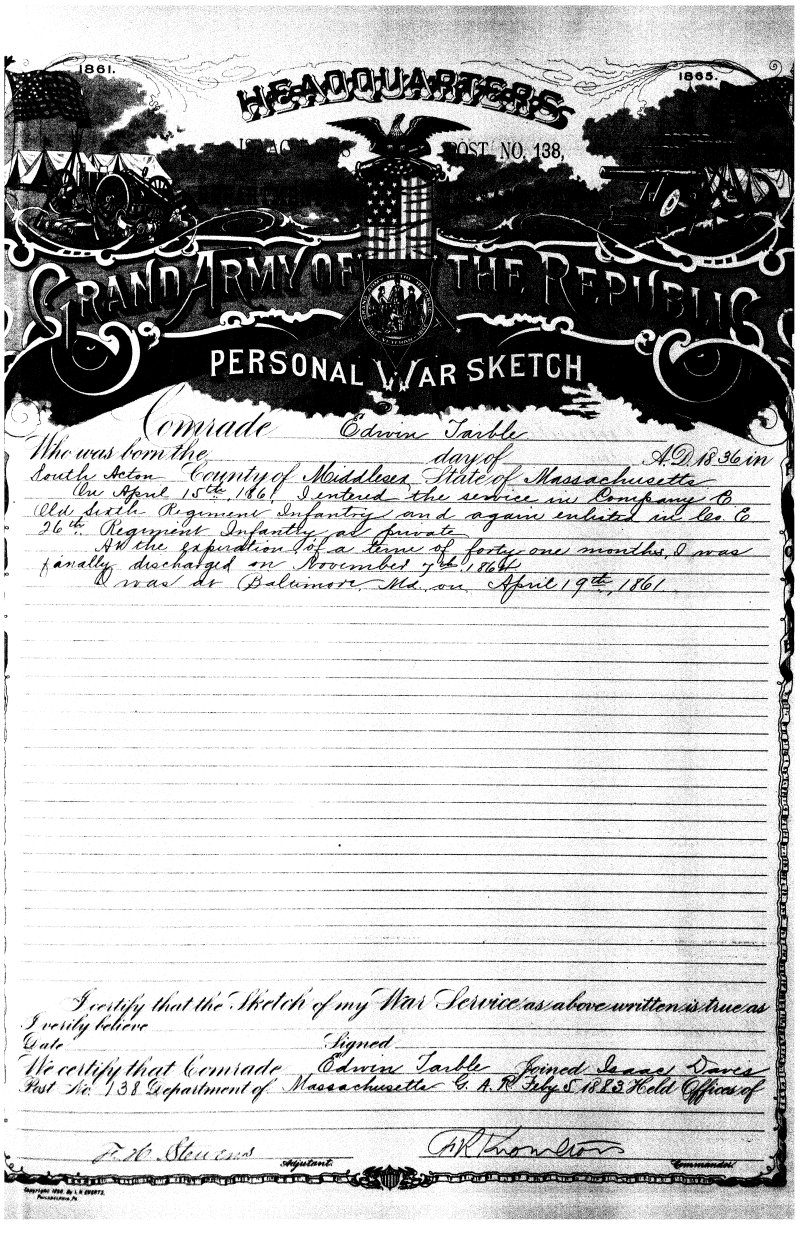 1861.
1865.
HEADQUARTERS
POST NO. 138,
GRAND ARMY OF THE REPUBLIC
PERSONAL WAR SKETCH
Comrade Edwin Tarble
Who was born the day of A.D. 1836 in
South Acton County of Middlesex State of Massachusetts
On April 15th, 1861, I entered the service in Company E
Old Sixth Regiment Infantry and again enlisted in Co. E
26th Regiment Infantry as private
At the expiration of a term of forty one months, I was
finally discharged on November 7th 1864
I was at Baltimore, Md. on April 19th, 1861.
I certify that the Sketch of my War Service as above written is true as
I verily believe
Date Signed
We certify that Comrade Edwin Tarble Joined Isaac Davis
Post No. 138 Department of Massachusetts G. A. R. Feby 5 1883 Held Offices of
F. H. Stevens
Adjutant.
Knowlton
Commander.
Copyright 1890. By L. H. EVERTS.
PHILADELPHIA, PA.